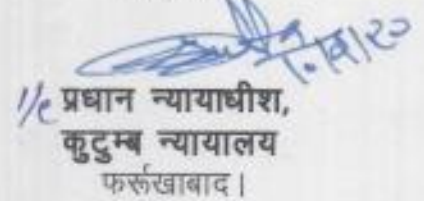 I/c प्रधान न्यायाधीश,
कुटुम्ब न्यायालय
फर्रूखाबाद।